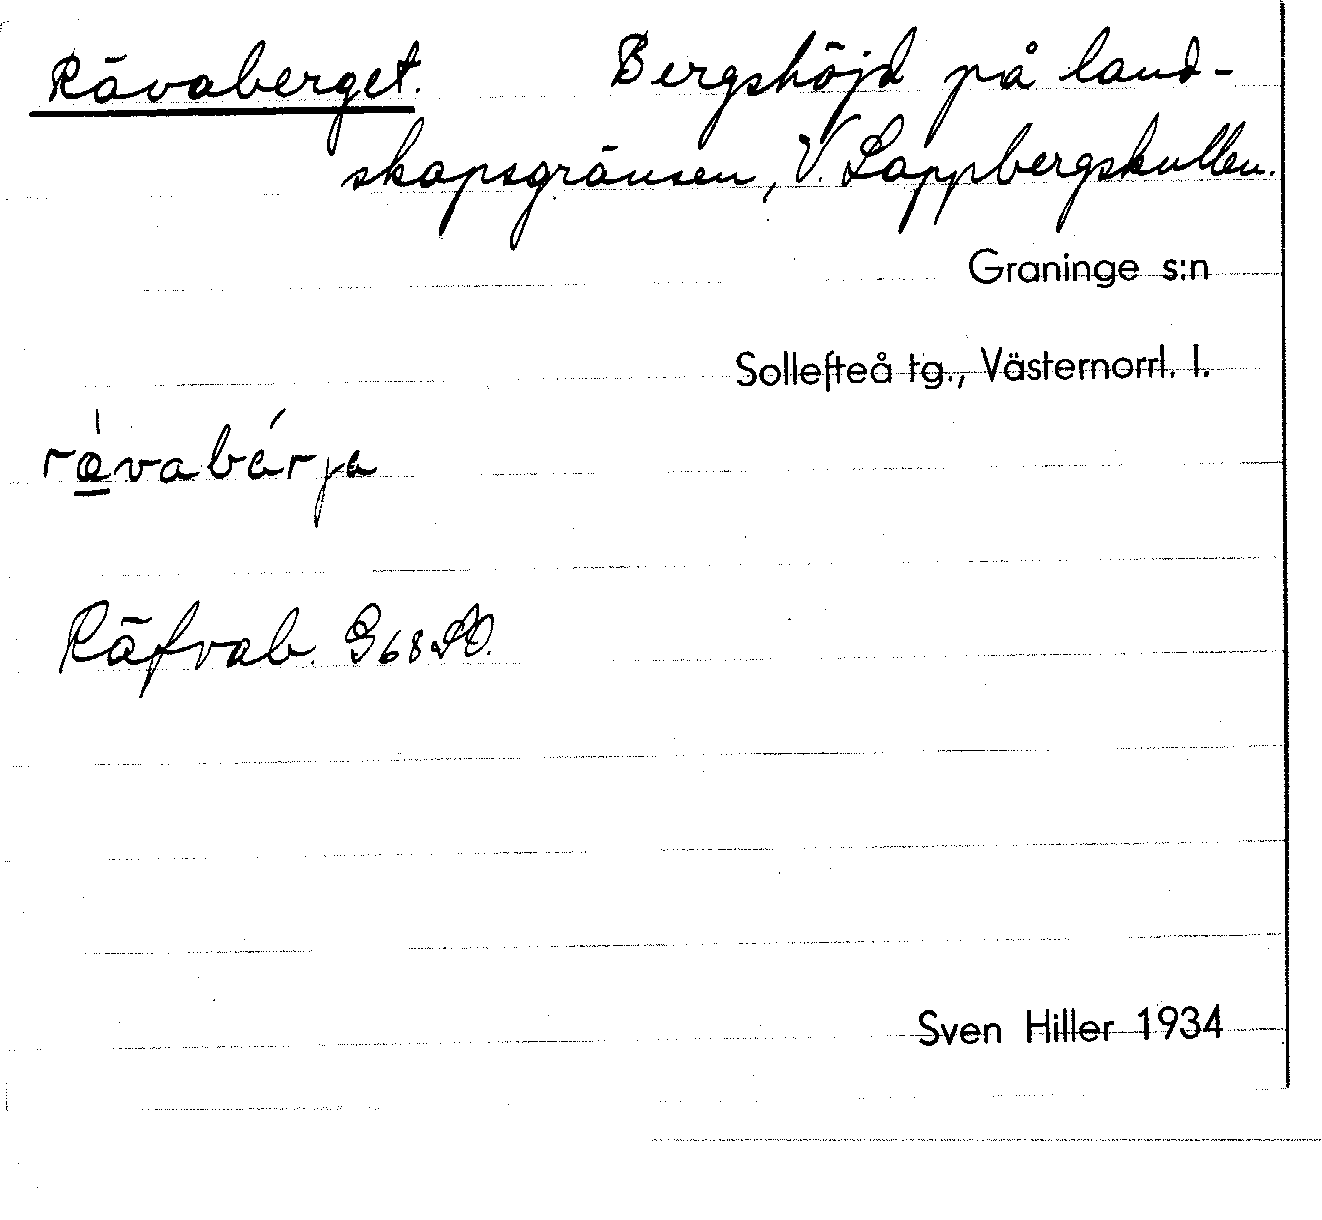 Rävaberget. Bergshöjd på land-
skapsgränsen, V. Lappbergskullen.
Graninge s:n
Sollefteå tg., Västernorrl. l.
Räfvab. G68SO.
Sven Hiller 1934